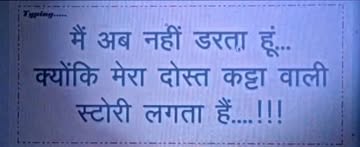 Typing.....
मैं अब नहीं डरता हूं...
क्योंकि मेरा दोस्त कट्टा वाली
स्टोरी लगता हैं....!!!